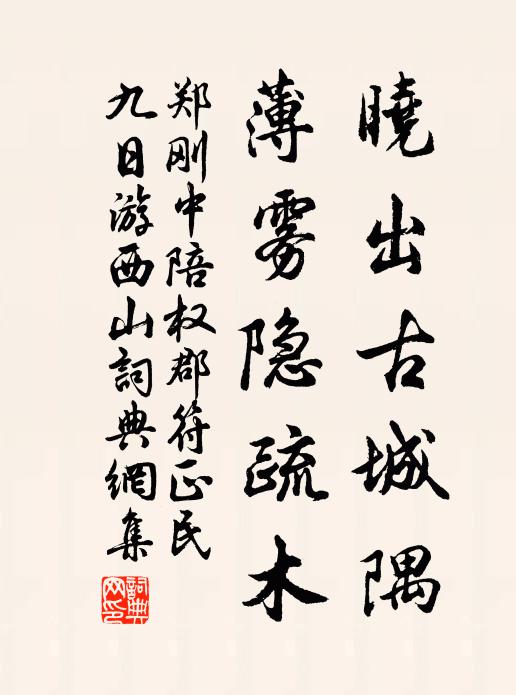 曉出古城隅
薄雾隐疏木
郑刚中陪权郡符正民
九日游西山詞典網集
詞典网印